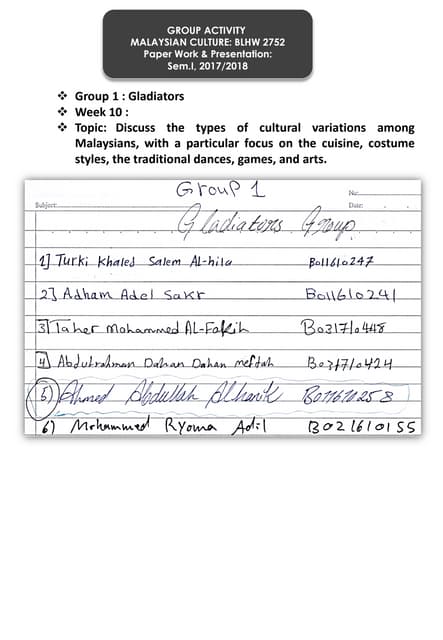 GROUP ACTIVITY
MALAYSIAN CULTURE: BLHW 2752
Paper Work & Presentation:
Sem.I, 2017/2018
❖ Group 1 : Gladiators
❖ Week 10 :
❖ Topic: Discuss the types of cultural variations among
Malaysians, with a particular focus on the cuisine, costume
styles, the traditional dances, games, and arts.
Group 1
No:
Subject:
Date:
Gladiators Group
1] Turki Khaled Salem AL-hila B011610247
2] Adham Adel Sakr B011610241
3] Taher Mohammed AL-Fakih B031710448
4] Abdulrahman Dahan Dahan meftah B031710424
5) Ahmed Abdullah B011610258
6) Mohammed Ryoma Adil B021610155